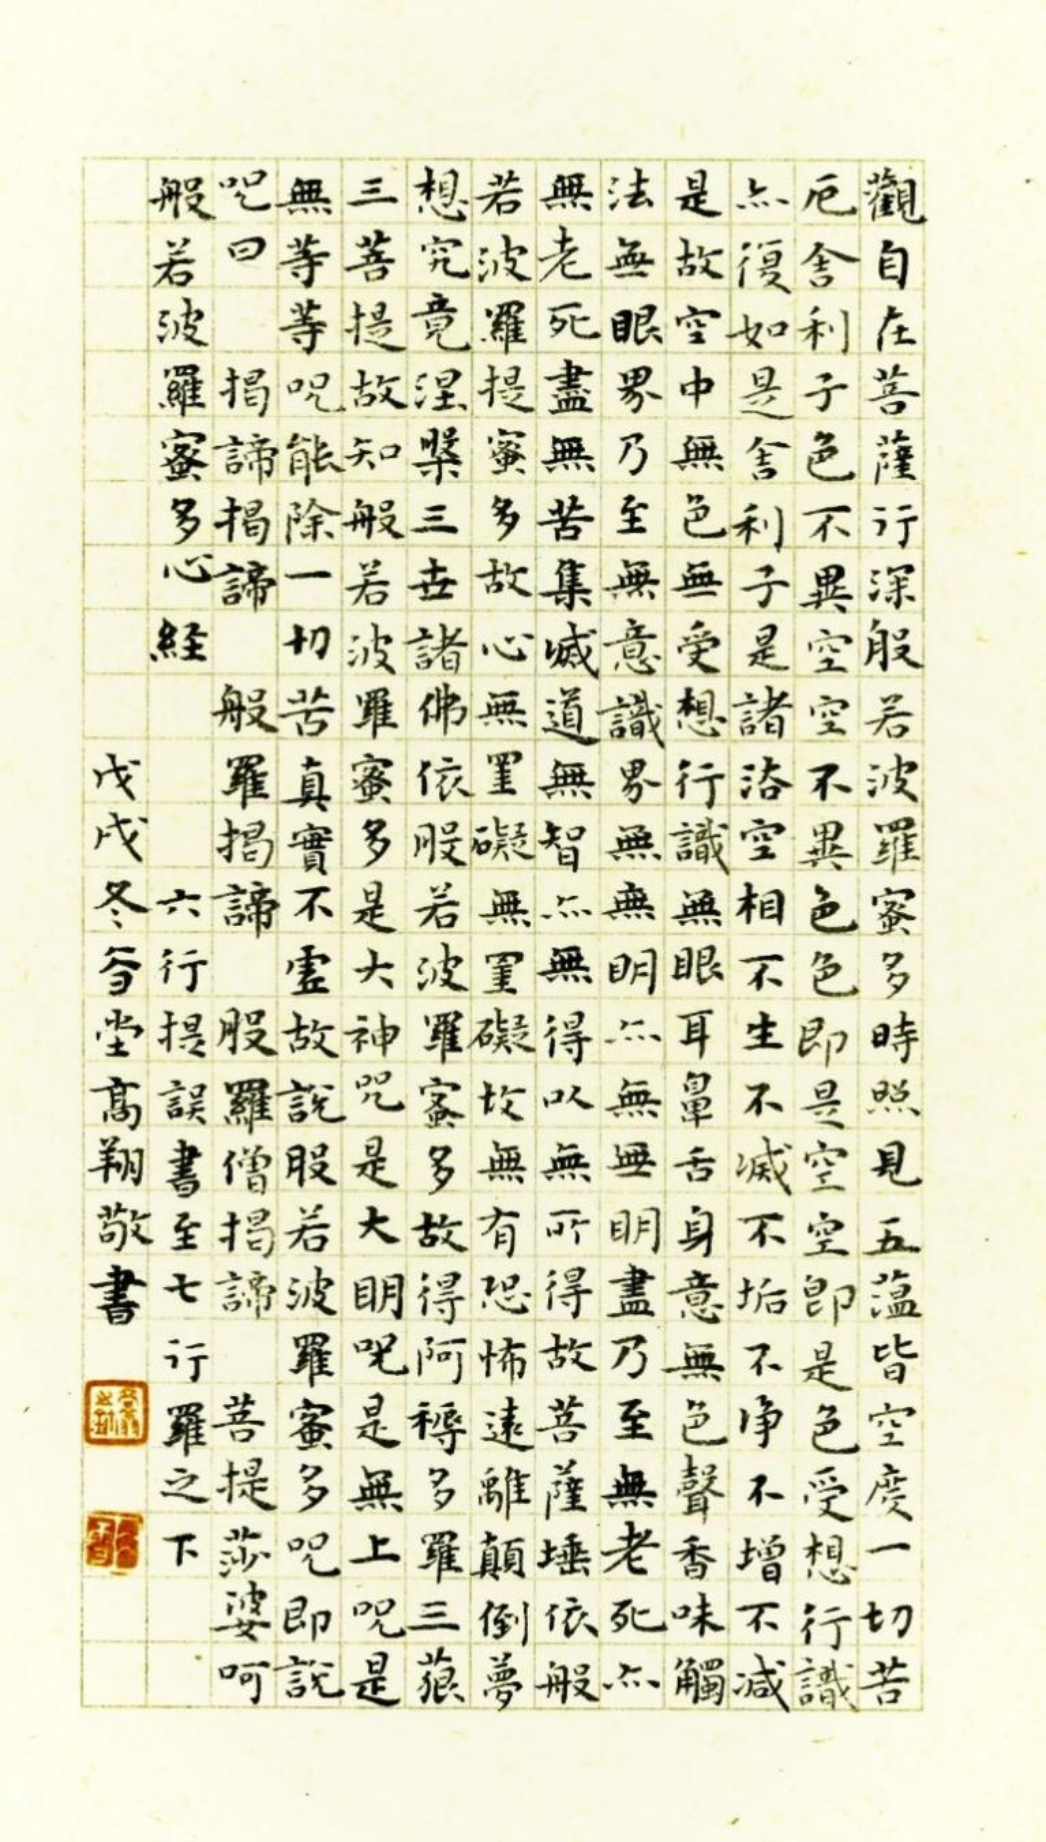 觀自在菩薩行深般若波羅蜜多時照見五蕰皆空度一切苦
厄舍利子色不異空空不異色色即是空空即是色受想行識
亦復如是舍利子是諸法空相不生不滅不垢不净不增不減
是故空中無色無受想行識無眼耳鼻舌身意無色聲香味觸
法無眼界乃至無意識界無無明亦無無明盡乃至無老死亦
無老死盡無苦集滅道無智亦無得以無所得故菩薩埵依般
若波羅提蜜多故心無罣礙無罣礙故無有恐怖遠離顛倒夢
想究竟涅槃三世諸佛依般若波羅蜜多故得阿耨多羅三藐
三菩提故知般若波羅蜜多是大神咒是大明咒是無上咒是
無等等咒能除一切苦真實不虛故說般若波羅蜜多咒即說
咒曰 揭諦揭諦 般羅揭諦 般羅僧揭諦 菩提莎婆呵
般若波羅蜜多心経 六行提誤書至七行羅之下
戊戌冬堂高翔敬書